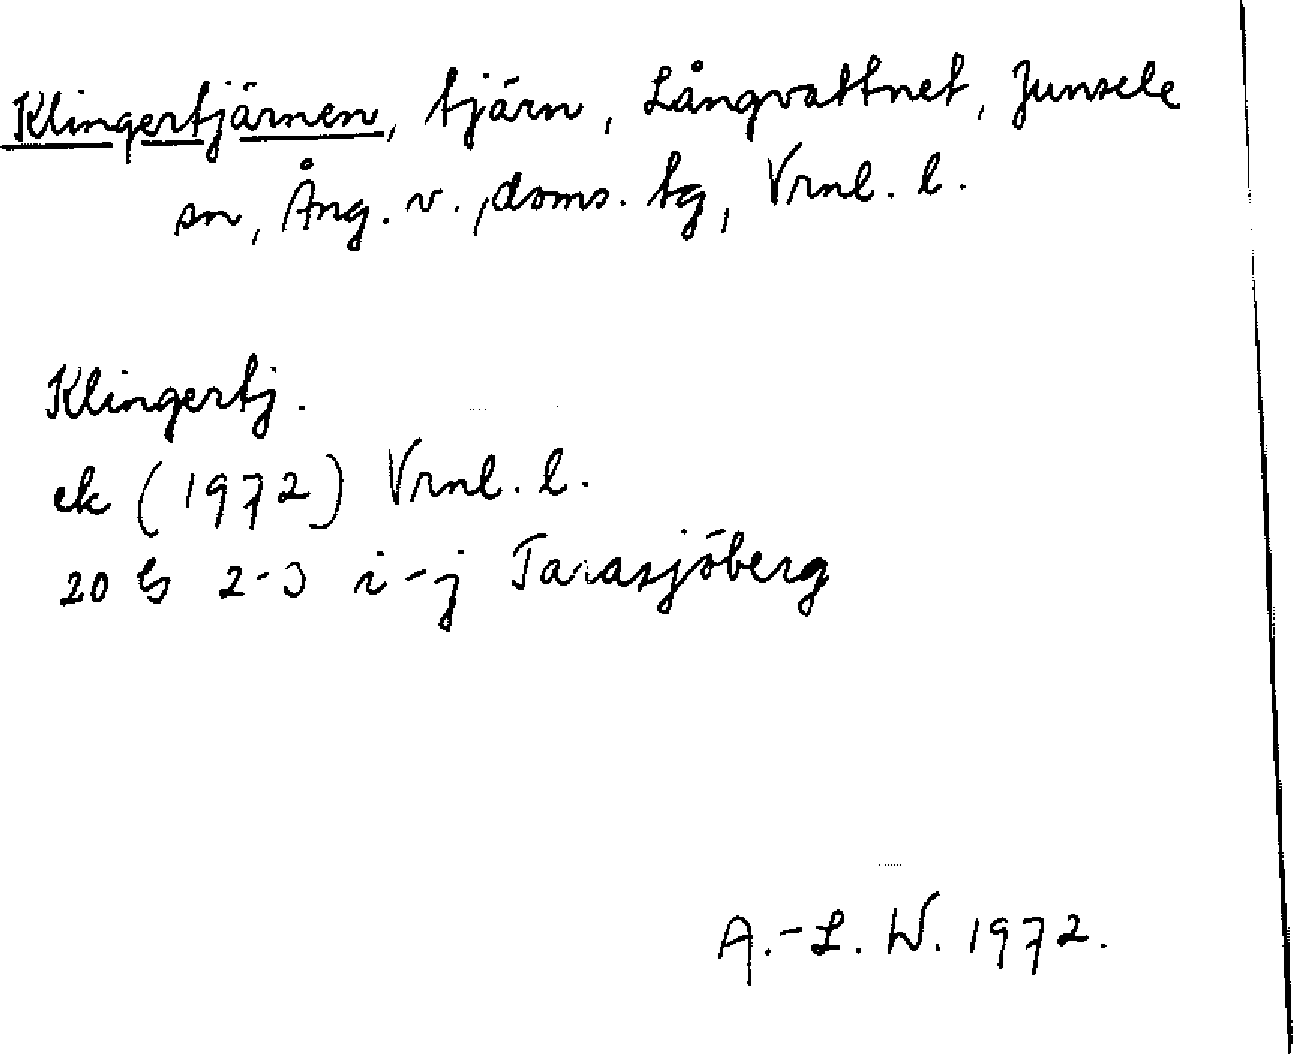 Klingertjärnen, tjärn, Långvattnet, Junsele
sn, Ång. v., doms. tg, Vrnl. l.
Klingertj.
ek (1972) Vrnl. l.
20 G 2-3 i-j Tarasjöberg
A.-L. W. 1972.